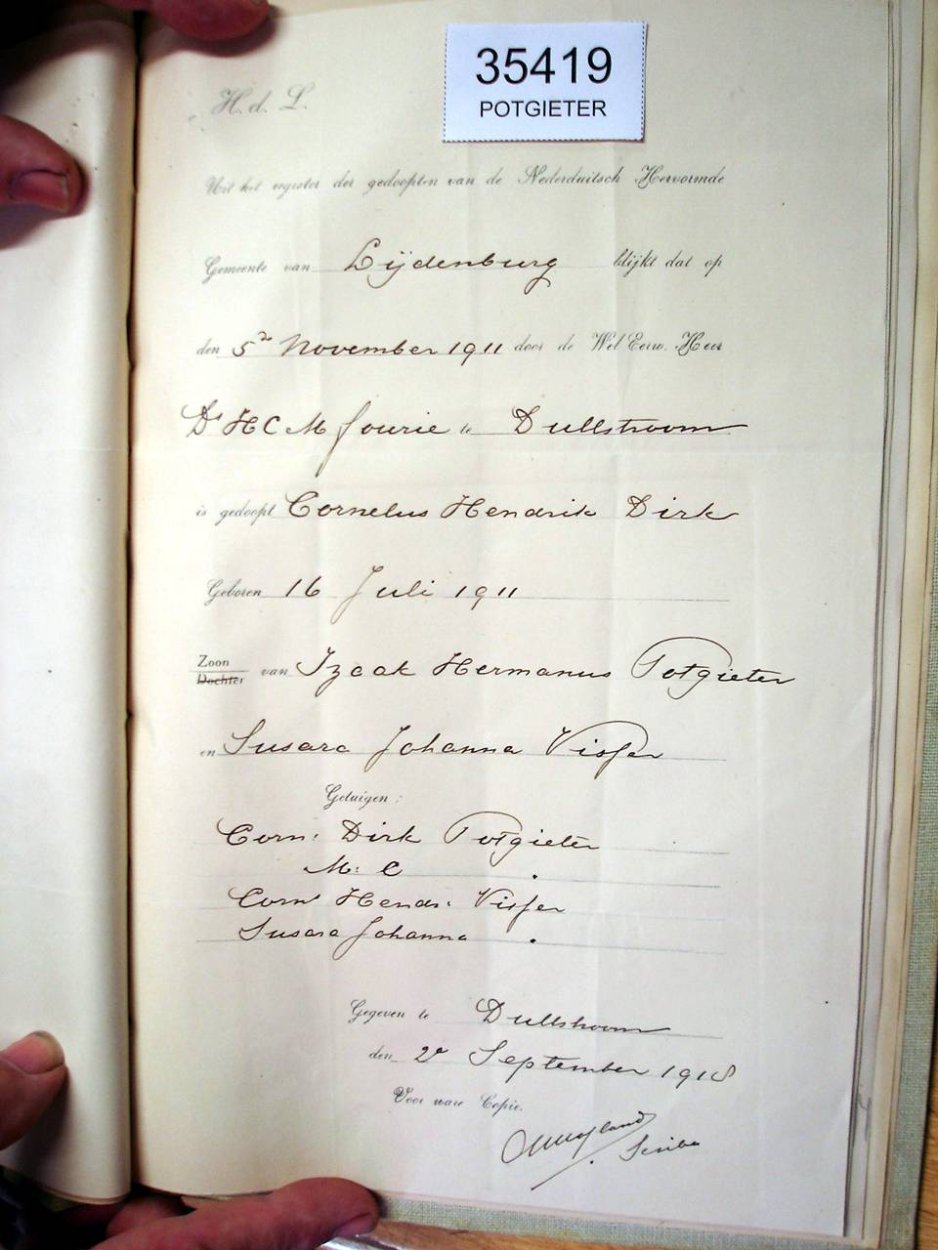 35419
POTGIETER
H. d. L.
Uit het register der gedoopten van de Nederduitsch Hervormde
Gemeente van Lijdenburg blijkt dat op
den 5de November 1911 door de Wel Eerw. Heer
Ds H C M Fourie te Dullstroom
is gedoopt Cornelus Hendrik Dirk
Geboren 16 Juli 1911
Zoon
Dochter van Izaak Hermanus Potgieter
en Susara Johanna Visser
Getuigen:
Corn: Dirk Potgieter
M: C "
Corns Hendr: Visser
Susara Johanna "
Gegeven te Dullstroom
den 2e September 1918
Voor ware Copie.
Scriba